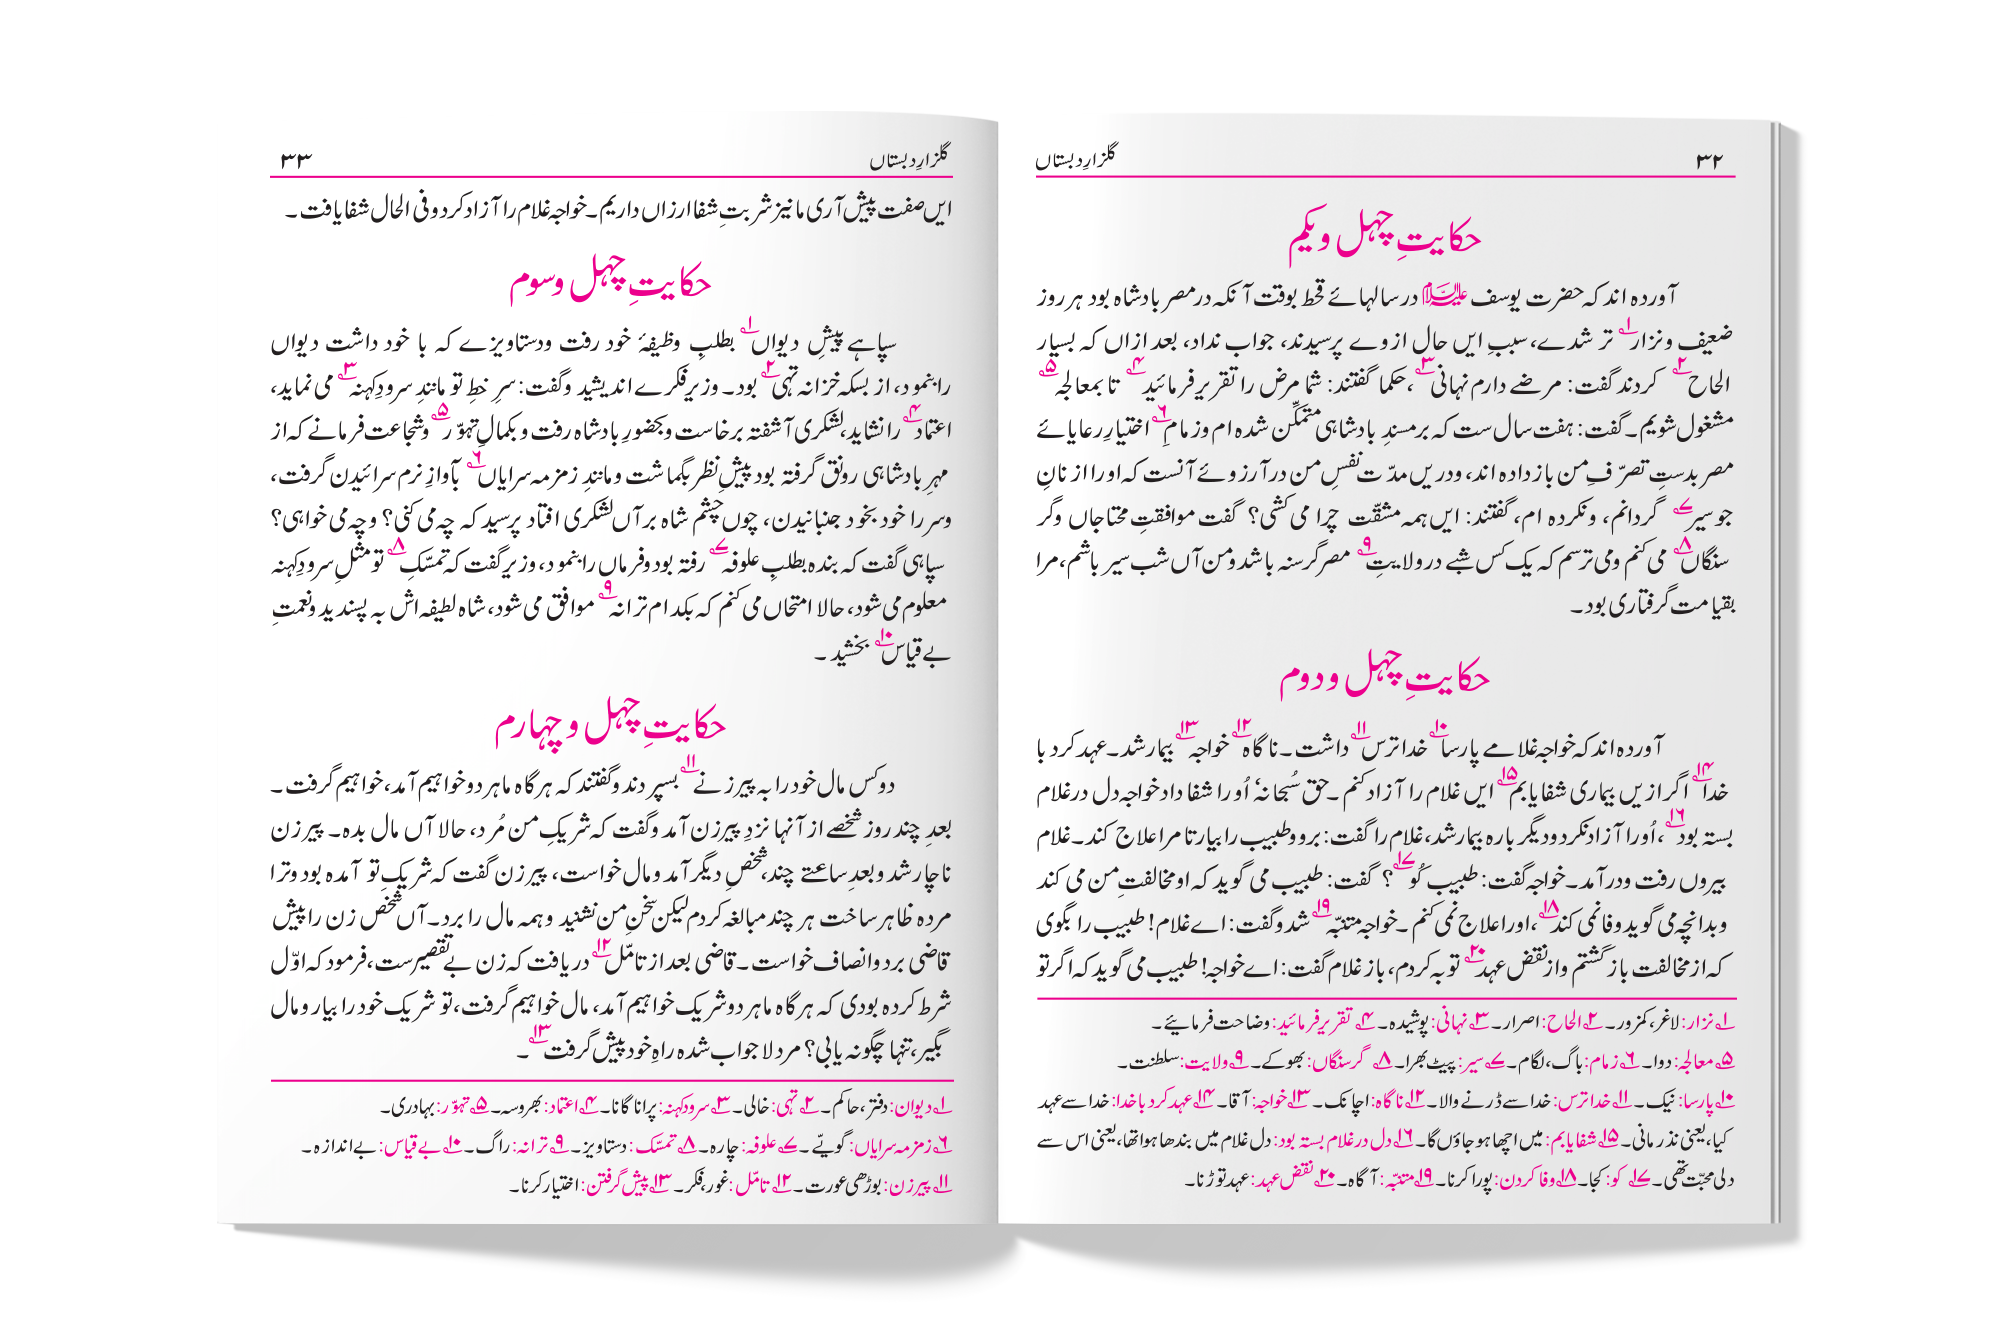 ۳۲
گلزارِ دبستاں
حکایتِ چہل ویکم
آورده اند کہ حضرت یوسف علیہ السلام در سالہائے قحط بوقت آنکہ در مصر بادشاه بود ہر روز
ضعیف و نزار۱ تر شدے، سببِ ایں حال از وے پرسیدند، جواب نداد، بعد ازاں کہ بسیار
الحاح۲ کردند گفت: مرضے دارم نہانی۳، حکما گفتند: شما مرض را تقریر فرمائید۴ تا بمعالجہ۵
مشغول شویم۔ گفت: ہفت سال ست کہ بر مسندِ بادشاہی متمکّن شده ام و زمامِ۶ اختیارِ رعایائے
مصر بدستِ تصرّفِ من باز داده اند، ودریں مدّت نفسِ من در آرزوئے آنست کہ او را از نانِ
جو سیر۷ گردانم، و نکرده ام، گفتند: ایں ہمہ مشقّت چرا می کشی؟ گفت موافقتِ محتاجاں وگر
سنگاں۸ می کنم ومی ترسم کہ یک کس شبے در ولایتِ۹ مصر گرسنہ باشد ومن آں شب سیر باشم، مرا
بقیامت گرفتاری بود۔
حکایتِ چہل ودوم
آورده اند کہ خواجہ غلامے پارسا۱۰ خدا ترس۱۱ داشت۔ ناگاه۱۲ خواجہ۱۳ بیمار شد۔ عہد کرد با
خدا۱۴ اگر ازیں بیماری شفا یابم۱۵ ایں غلام را آزاد کنم۔ حق سُبحانہٗ اُو را شفا داد خواجہ دل در غلام
بستہ بود۱۶، اُورا آزاد نکرد ودیگر باره بیمار شد، غلام را گفت: برو وطبیب را بیار تا مرا علاج کند۔ غلام
بیروں رفت ودر آمد۔ خواجہ گفت: طبیب کُو۱۷؟ گفت: طبیب می گوید کہ او مخالفتِ من می کند
وبدانچہ می گوید وفا نمی کند۱۸، اورا علاج نمی کنم۔ خواجہ متنبّہ۱۹ شد وگفت: اے غلام! طبیب را بگوی
کہ از مخالفت باز گشتم واز نقض عہد۲۰ توبہ کردم، باز غلام گفت: اے خواجہ! طبیب می گوید کہ اگر تو
۱ نزار: لاغر، کمزور۔ ۲ الحاح: اصرار۔ ۳ نہانی: پوشیده۔ ۴ تقریر فرمائید: وضاحت فرمائیے۔
۵ معالجہ: دوا۔ ۶ زمام: باگ، لگام۔ ۷ سیر: پیٹ بھرا۔ ۸ گرسنگاں: بھوکے۔ ۹ ولایت: سلطنت۔
۱۰ پارسا: نیک۔ ۱۱ خدا ترس: خدا سے ڈرنے والا۔ ۱۲ ناگاه: اچانک۔ ۱۳ خواجہ: آقا۔ ۱۴ عہد کرد با خدا: خدا سے عہد
کیا، یعنی نذر مانی۔ ۱۵ شفا یابم: میں اچھا ہو جاؤں گا۔ ۱۶ دل در غلام بستہ بود: دل غلام میں بندھا ہوا تھا، یعنی اس سے
دلی محبّت تھی۔ ۱۷ کو: کجا۔ ۱۸ وفا کردن: پورا کرنا۔ ۱۹ متنبّہ: آگاه۔ ۲۰ نقض عہد: عہد توڑنا۔
گلزارِ دبستاں
۳۳
ایں صفت پیش آری ما نیز شربتِ شفا ارزاں داریم۔ خواجہ غلام را آزاد کرد و فی الحال شفا یافت۔
حکایتِ چہل وسوم
سپاہے پیشِ دیواں۱ بطلبِ وظیفۂ خود رفت ودستاویزے کہ با خود داشت دیواں
را بنمود، از بسکہ خزانہ تہی۲ بود۔ وزیر فکرے اندیشید وگفت: سرِ خطِ تو مانندِ سرودِ کہنہ۳ می نماید،
اعتماد۴ را نشاید، لشکری آشفتہ برخاست وبحضورِ بادشاه رفت و بکمالِ تہوّر۵ وشجاعت فرمانے کہ از
مہرِ بادشاہی رونق گرفتہ بود پیشِ نظر بگماشت ومانندِ زمزمہ سرایاں۶ بآوازِ نرم سرائیدن گرفت،
وسر را خود بخود جنبانیدن، چوں چشم شاه بر آں لشکری افتاد پرسید کہ چہ می کنی؟ وچہ می خواہی؟
سپاہی گفت کہ بنده بطلبِ علوفہ۷ رفتہ بود وفرماں را بنمود، وزیر گفت کہ تمسّک۸ تو مثلِ سرودِ کہنہ
معلوم می شود، حالا امتحاں می کنم کہ بکدام ترانہ۹ موافق می شود، شاه لطیفہ اش بہ پسندید ونعمتِ
بے قیاس۱۰ بخشید۔
حکایتِ چہل و چہارم
دو کس مال خود را بہ پیر زنے۱۱ بسپردند وگفتند کہ ہر گاه ما ہر دو خواہیم آمد، خواہیم گرفت۔
بعدِ چند روز شخصے از آنہا نزدِ پیر زن آمد وگفت کہ شریکِ من مُرد، حالا آں مال بده۔ پیر زن
ناچار شد وبعدِ ساعتے چند، شخصِ دیگر آمد ومال خواست، پیر زن گفت کہ شریکِ تو آمده بود وترا
مرده ظاہر ساخت ہر چند مبالغہ کردم لیکن سخنِ من نشنید وہمہ مال را برد۔ آں شخص زن را پیش
قاضی برد وانصاف خواست۔ قاضی بعد از تامّل۱۲ دریافت کہ زن بے تقصیر ست، فرمود کہ اوّل
شرط کرده بودی کہ ہر گاه ما ہر دو شریک خواہیم آمد، مال خواہیم گرفت، تو شریک خود را بیار ومال
بگیر، تنہا چگونہ یابی؟ مرد لا جواب شده راهِ خود پیش گرفت۱۳۔
۱ دیوان: دفتر، حاکم۔ ۲ تہی: خالی۔ ۳ سرودِ کہنہ: پرانا گانا۔ ۴ اعتماد: بھروسہ۔ ۵ تہوّر: بہادری۔
۶ زمزمہ سرایاں: گویّے۔ ۷ علوفہ: چاره۔ ۸ تمسّک: دستاویز۔ ۹ ترانہ: راگ۔ ۱۰ بے قیاس: بے اندازه۔
۱۱ پیر زن: بوڑھی عورت۔ ۱۲ تامّل: غور، فکر۔ ۱۳ پیش گرفتن: اختیار کرنا۔